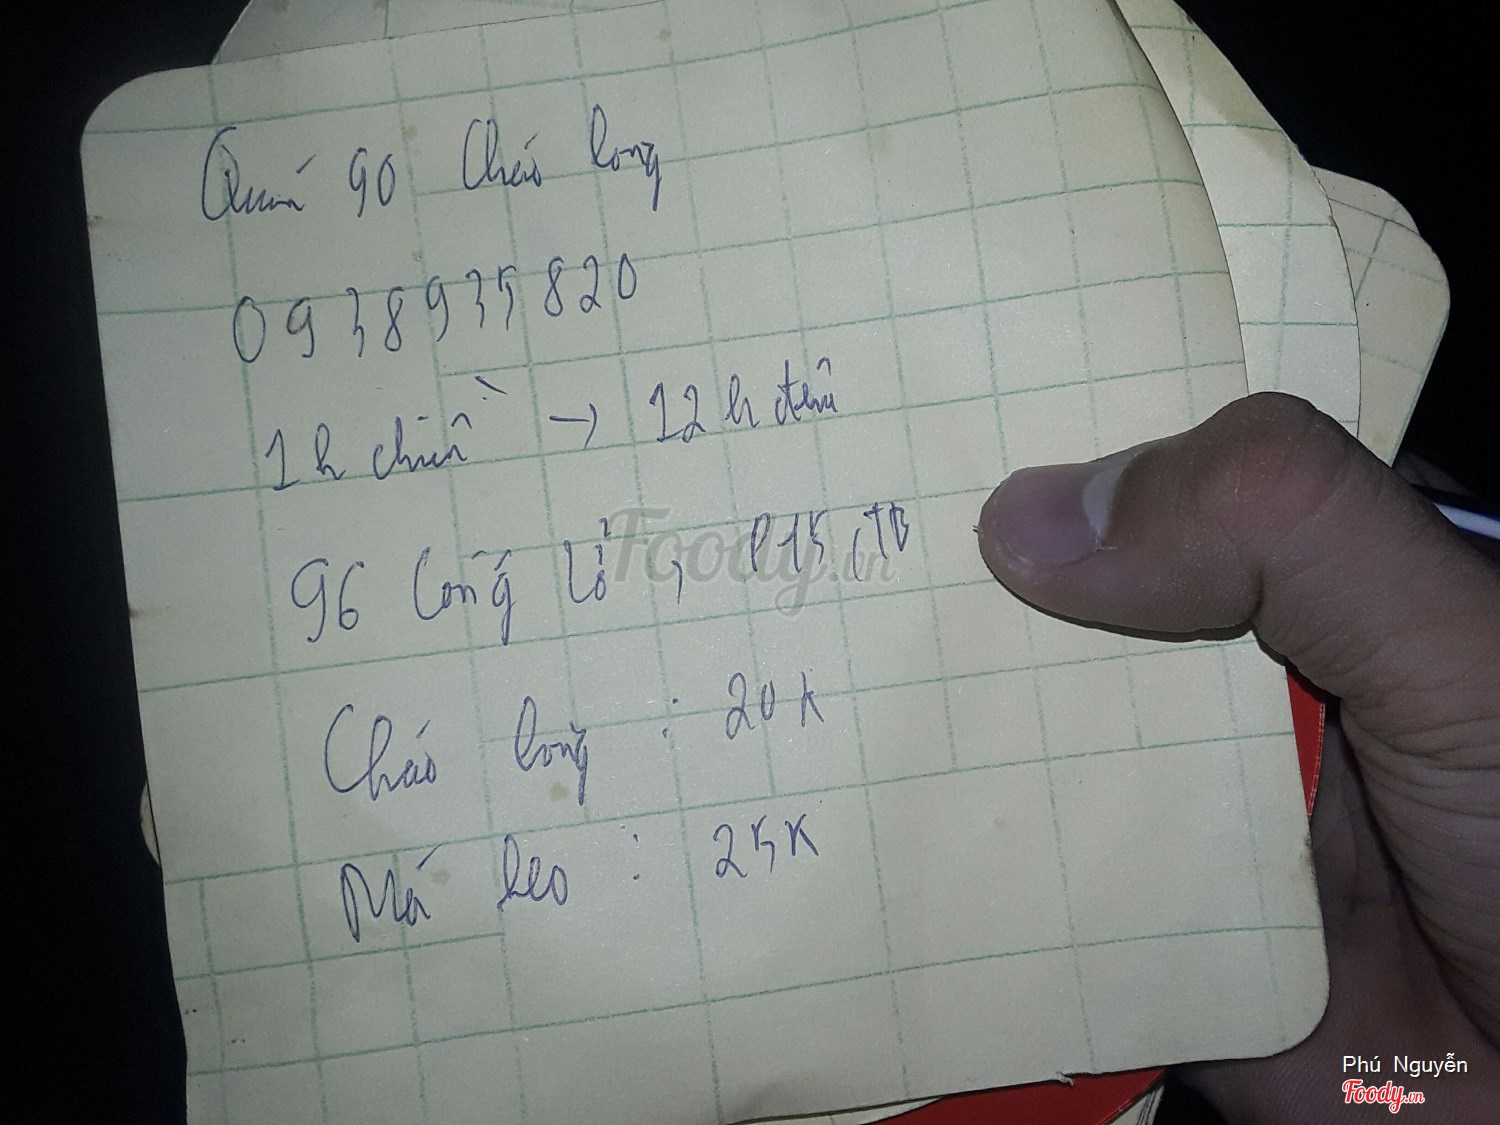 Quán 90 Cháo lòng
0938935820
1h chiều → 12h đêm
96 Cống Lở, P15, TB
Cháo lòng : 20K
Má heo : 25K
Foody.vn
Phú Nguyễn
Foody.vn